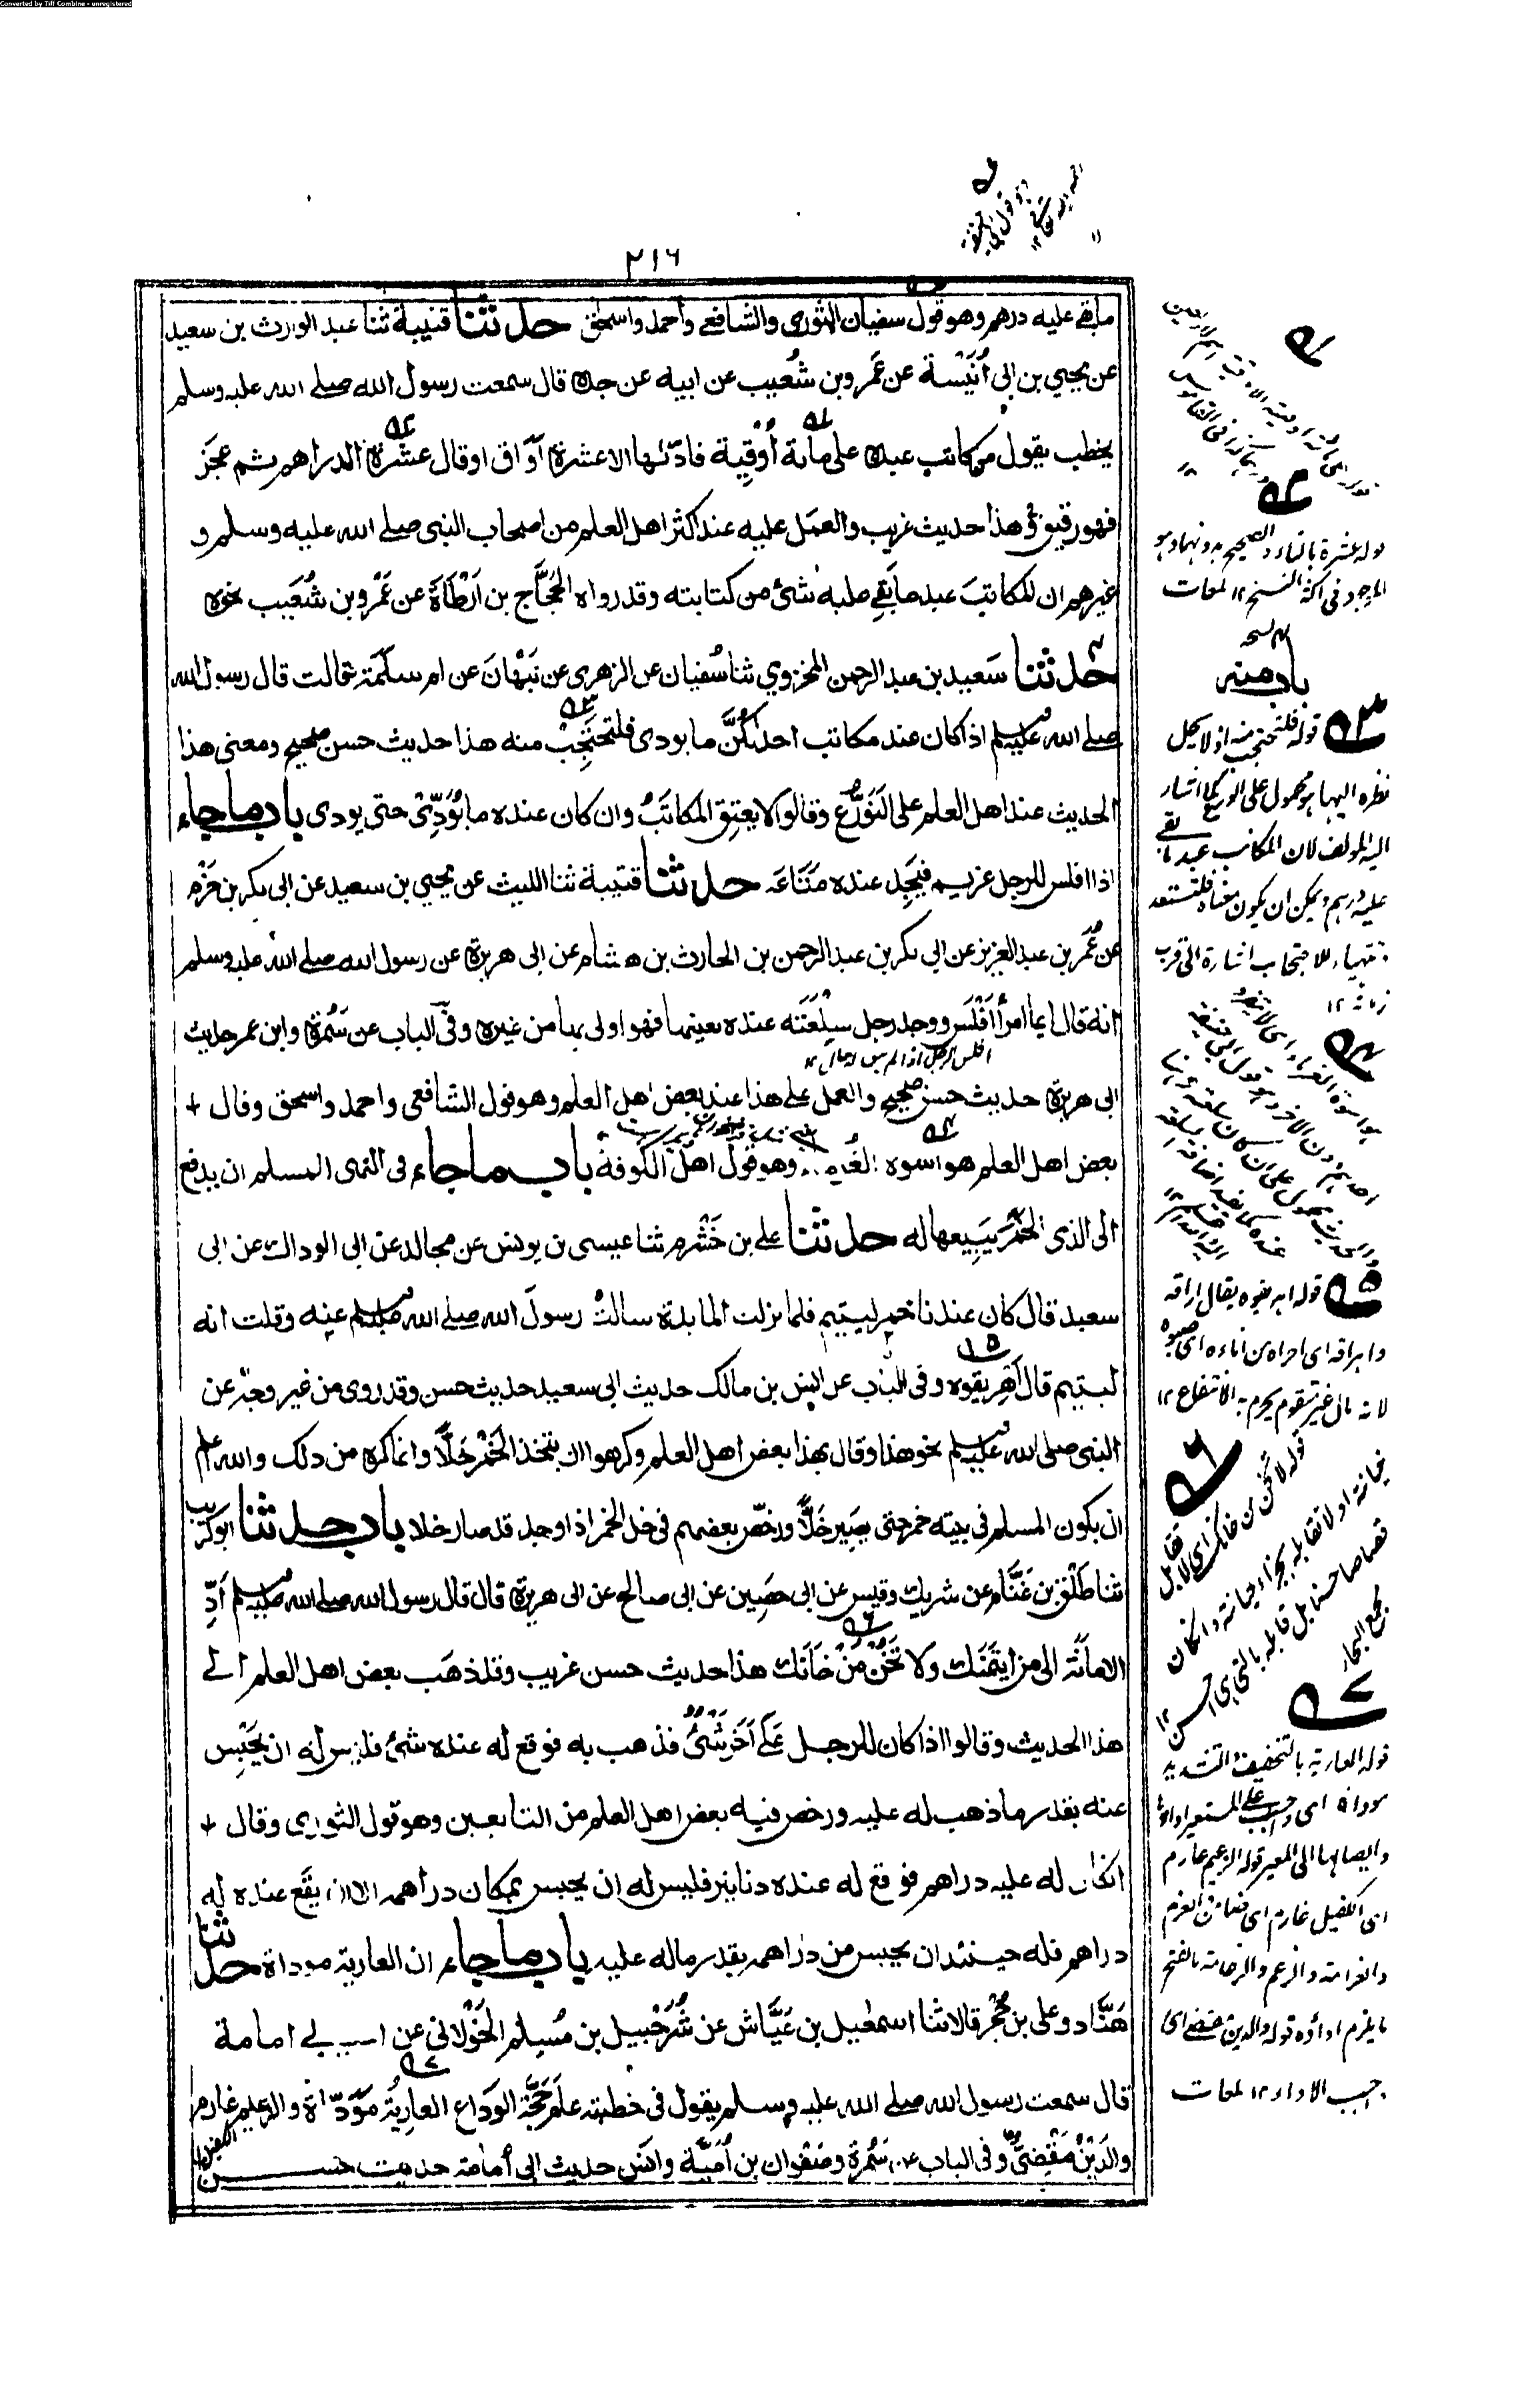 Converted by Tiff Combine - unregistered
٢١٦
ما بقے عليه درهم وهو قول سفيان الثوري والشافعي وأحمد واسحٰق حدثنا قتيبة ثنا عبد الوارث بن سعيد
عن يحيي بن ابي أُنَيْسة عن عَمرو بن شُعيب عن ابيه عن جده قال سمعت رسول الله صلے الله عليه وسلم
يخطب يقول من كاتب عبده على مائة أُوْقِية فادّٮٰها الا عشرة آوَاق او قال عشرة الدراهم ثم عجزَ
فهو رقيق هذا حديث غريب والعمَل عليه عند اكثر اهل العلم من اصحاب النبي صلے الله عليه وسلم و
غيرهم ان المكاتبَ عبد ما بَقِے عليه شئ من كتابته وقد رواه الحجَّاج بن اَرْطاَةَ عن عَمْرو بن شُعَيب نحوه
حدثنا سَعيد بن عبد الرحمن المخزومي ثنا سُفيان عن الزهري عن نَبْهَانَ عن ام سلَمَة قالت قال رسول الله
صلے الله عليه وسلم اذا كان عند مكاتب احدٰكُنَّ ما يودى فلتحتَجِبْ منه هذا حديث حسن صحيح ومعنى هذا
الحديث عند اهل العلم على التَوَرُّع وقالوا لا يعتِق المكاتَبُ وان كان عنده ما يُؤَدِّيْ حتى يودى باب ما جاء
اذا افلس للرجل غريم فيَجِد عنده مَتَاعَه حدثنا قتيبة ثنا الليث عن يحيي بن سعيد عن ابي بكر بن حَزْم
عن عُمَر بن عبد العزيز عن ابي بكر بن عبد الرحمن بن الحارث بن هشام عن ابى هريرة عن رسول الله صلى الله عليه وسلم
انه قال ايما امرأ اَفْلَس ووجد رجل سِلْعَتَه عنده بعينها فهو اولى بها من غيره وفى الباب عن سَمُرة وابن عمر حديث
ابى هريرة حديث حسن صحيح والعمل علے هذا عند بعض اهل العلم وهو قول الشافعي واحمد واسحق وقال
بعض اهل العلم هو اسوة الغُرماء وهو قول اهل الكوفة باب ما جاء فى النهى المسلم ان يدفع
الى الذمى الخمْرَ يَبيعها له حدثنا علے بن خَشْرم ثنا عيسى بن يونس عن مجالد عن ابى الوداك عن ابى
سعيد قال كان عندنا خمر ليتيم فلما نزلت المائدة سالتُ رسولَ الله صلے الله عليه وسلم عنه وقلت انه
ليتيم قال اَهْرِيقوه وفى الباب عن انس بن مالك حديث ابى سعيد حديث حسن وقد روى من غير وجه عن
النبى صلى الله عليه وسلم نحو هذا وقال بهذا بعض اهل العلم وكرهوا ان يتخذ الخَمْر خَلًّا وانما كره من ذلك والله اعلم
ان يكون المسلم فى بيته خمر حتى يصِير خَلًّا ورخّص بعضهم فى خل الخمر اذا وجد قد صار خلا باب حدثنا ابو كريب
ثنا طَلْق بن غَنَّام عن شريك وقيس عن ابى حصِين عن ابى صالح عن ابى هريرة قال قال رسول الله صلے الله عليه وسلم اَدِّ
الامانَة الى من ايتمَنك ولا تَخُنْ مَنْ خَانَك هذا حديث حسن غريب وقد ذهَب بعض اهل العلم الے
هذا الحديث وقالوا اذا كان للرجل عَلٰے آخَر شَئٌ فذهب به فوقع له عنده شئ فليس له ان يَحْبِس
عنه بقدر ما ذهب له عليه ورخص فيه بعض اهل العلم من التابعين وهو قول الثوري وقال
انكان له عليه دراهم فوقع له عنده دنانير فليس له ان يحبس بمكان دراهمه الا ان يقَع عنده له
دراهم فله حينئذ ان يحبس من دراهمه بقدر ماله عليه باب ما جاء ان العارية موداة حدثنا
هَنَّاد وعلى بن حُجْر قالا ثنا اسمٰعيل بن عَيَّاش عن شُرَحْبيل بن مُسلِم الخَوْلانى عن ابي امامة
قال سمعت رسول الله صلے الله عليه وسلم يقول فى خطبته عام حَجّة الوَداع العارِيَةُ مؤَدّاة والزعيم غارم
والدَيْن مَقْضِيٌّ وفى الباب عن سَمُرة وصَفْوان بن اُمَيّة وانس حديث ابى أمامة حديث حسن
قوله عشرة بالتاء والصحيح بدونها وهو
الموجود فى اكثر النسخ ١٢ لمعات
باب منه
قوله فلتحتجب منه اذ لا يحل
نظره اليها هو محمول على الورع كما اشار
اليه المؤلف لان المكاتب عبد ما بقے
عليه درهم ويمكن ان يكون معناه فلتستعد
وتتهيأ للاحتجاب اشارة الى قرب
زمانه ١٢
قوله اهريقوه يقال اراقه
لانه مال غير متقوم يحرم به الانتفاع ١٢
قوله لا تخن من خانك اى لا تقابل
مجمع البحار
قوله العارية بالتخفيف والتشديد
موداة اى واجب على المستعير اداؤها
وايصالها الى المعير قوله الزعيم غارم
اى الكفيل غارم اى ضامن الغرم
والغرامة والزعم والزعامة بالفتح
ما يلزم اداؤه قوله والدين مقضى اى
يجب الاداء ١٢ لمعات